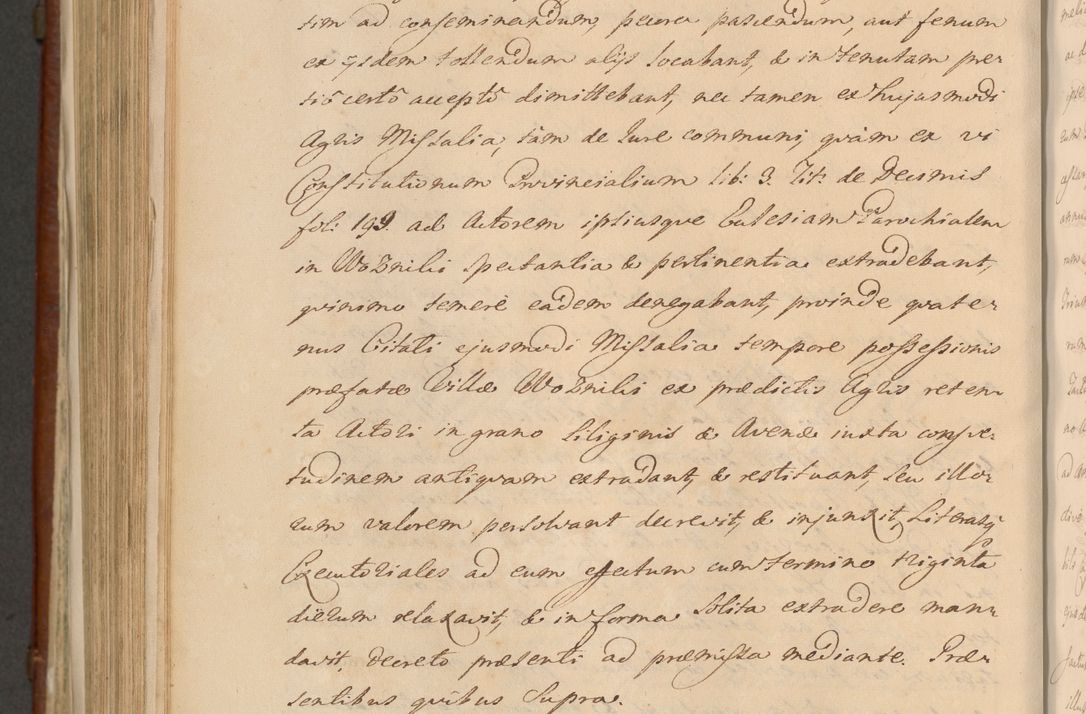 tim ad conseminandum, pecora pascendum, aut fenum
ex ijsdem tollendum alijs locabant, & in tenutam pre-
tiô certô acceptô dimittebant, nec tamen ex hujusmodi
Agris Missalia, tàm de Iure communi, qvàm ex vi
Constitutionum Provincialium lib: 3. Tit: de Decimis
fol: 199. ad Actorem ipsiusque Ecclesiam Parochialem
in Woznilii spectantia & pertinentia extradebant,
qvinimo temerè eadem denegabant, proinde qvate-
nus Citati ejusmodi Missalia tempore possessionis
præfatæ Villæ Woznilii ex prædictis Agris reten-
ta Actori in grano Siliginis & Avenæ iuxta consve-
tudinem antiqvam extradant, & restituant, seu illo-
rum valorem persolvant decrevit, & injunxit, Literasq
Executoriales ad eum effectum cum termino triginta
dierum relaxavit, & in forma solita extradere man-
davit, Decreto præsenti ad præmissa mediante. Præ-
sentibus qvibus Supra.